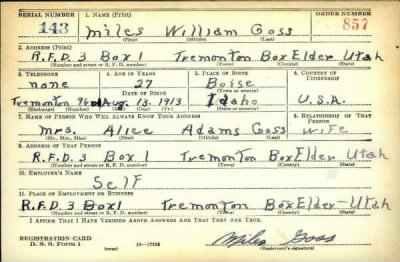 SERIAL NUMBER 1. NAME (Print) ORDER NUMBER
143 Miles William Goss 857
(First) (Middle) (Last)
2. ADDRESS (Print)
R.F.D. 3 Box 1 Tremonton Box Elder Utah
(Number and street or R. F. D. number) (Town) (County) (State)
3. TELEPHONE 4. AGE IN YEARS 5. PLACE OF BIRTH 6. COUNTRY OF CITIZENSHIP
none 27 Boise
DATE OF BIRTH (Town or county)
Tremonton Aug. 13 1913 Idaho U.S.A.
(Exchange) (Number) (Mo.) (Day) (Yr.) (State or country)
7. NAME OF PERSON WHO WILL ALWAYS KNOW YOUR ADDRESS 8. RELATIONSHIP OF THAT PERSON
Mrs. Alice Adams Goss wife
(Mr., Mrs., Miss) (First) (Middle) (Last)
9. ADDRESS OF THAT PERSON
R.F.D. 3 Box 1 Tremonton Box Elder Utah
(Number and street or R. F. D. number) (Town) (County) (State)
10. EMPLOYER'S NAME
Self
11. PLACE OF EMPLOYMENT OR BUSINESS
R.F.D. 3 Box 1 Tremonton Box Elder-Utah
(Number and street or R. F. D. number) (Town) (County) (State)
I AFFIRM THAT I HAVE VERIFIED ABOVE ANSWERS AND THAT THEY ARE TRUE.
REGISTRATION CARD
D. S. S. Form 1 (over) 16-17105 Miles Goss
(Registrant's signature)